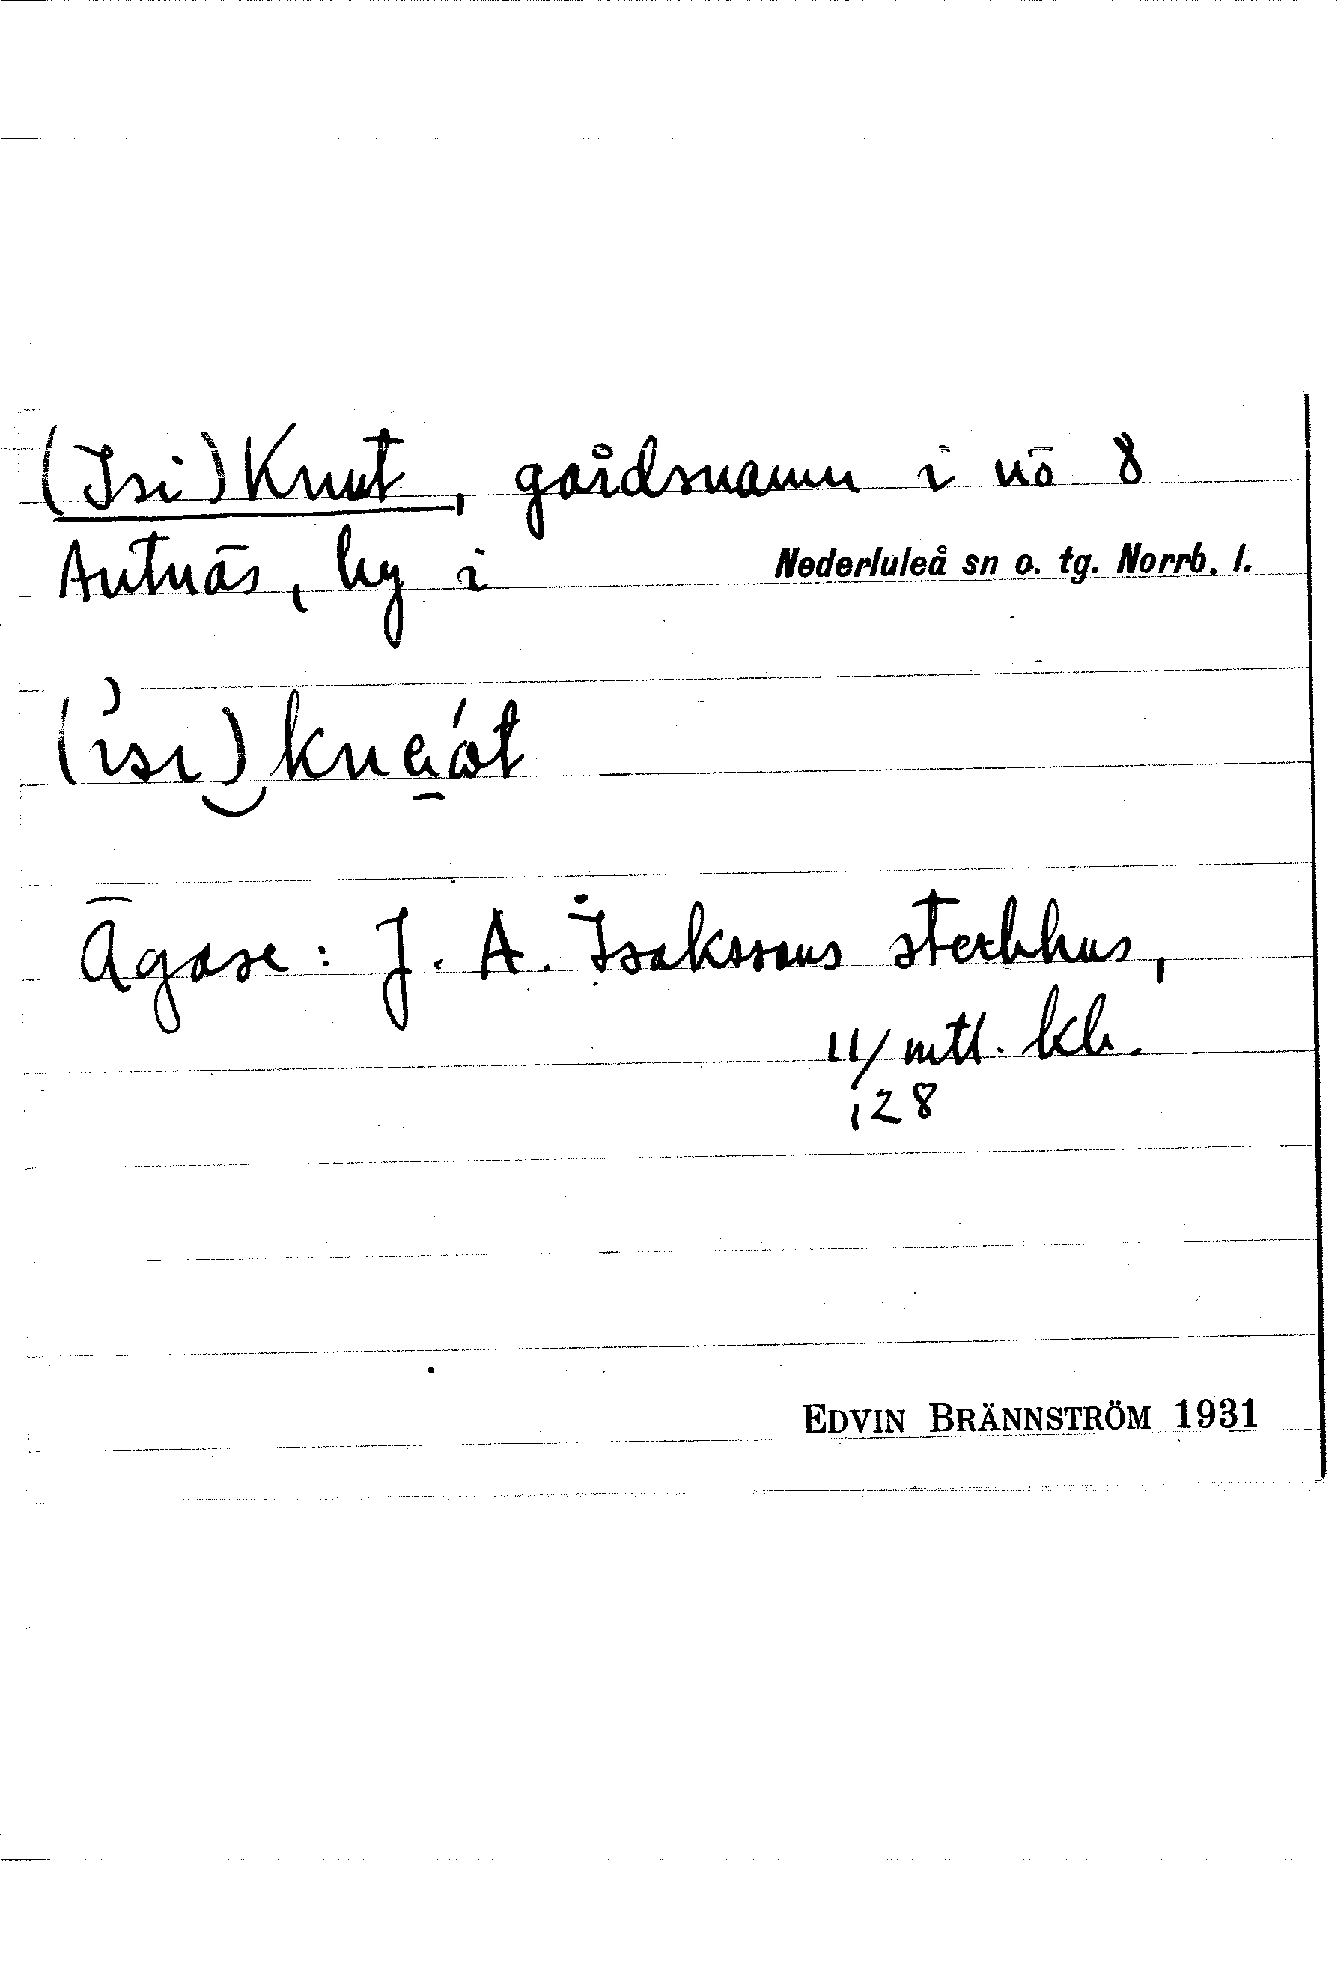 (Isi)Knut, gårdsnamn i nō 8
Antnäs, by i Nederluleå sn o. tg. Norrb. l.
Ägare: J. A. Isakssons sterbhus,
11/128 mtl. kb.
EDVIN BRÄNNSTRÖM 1931